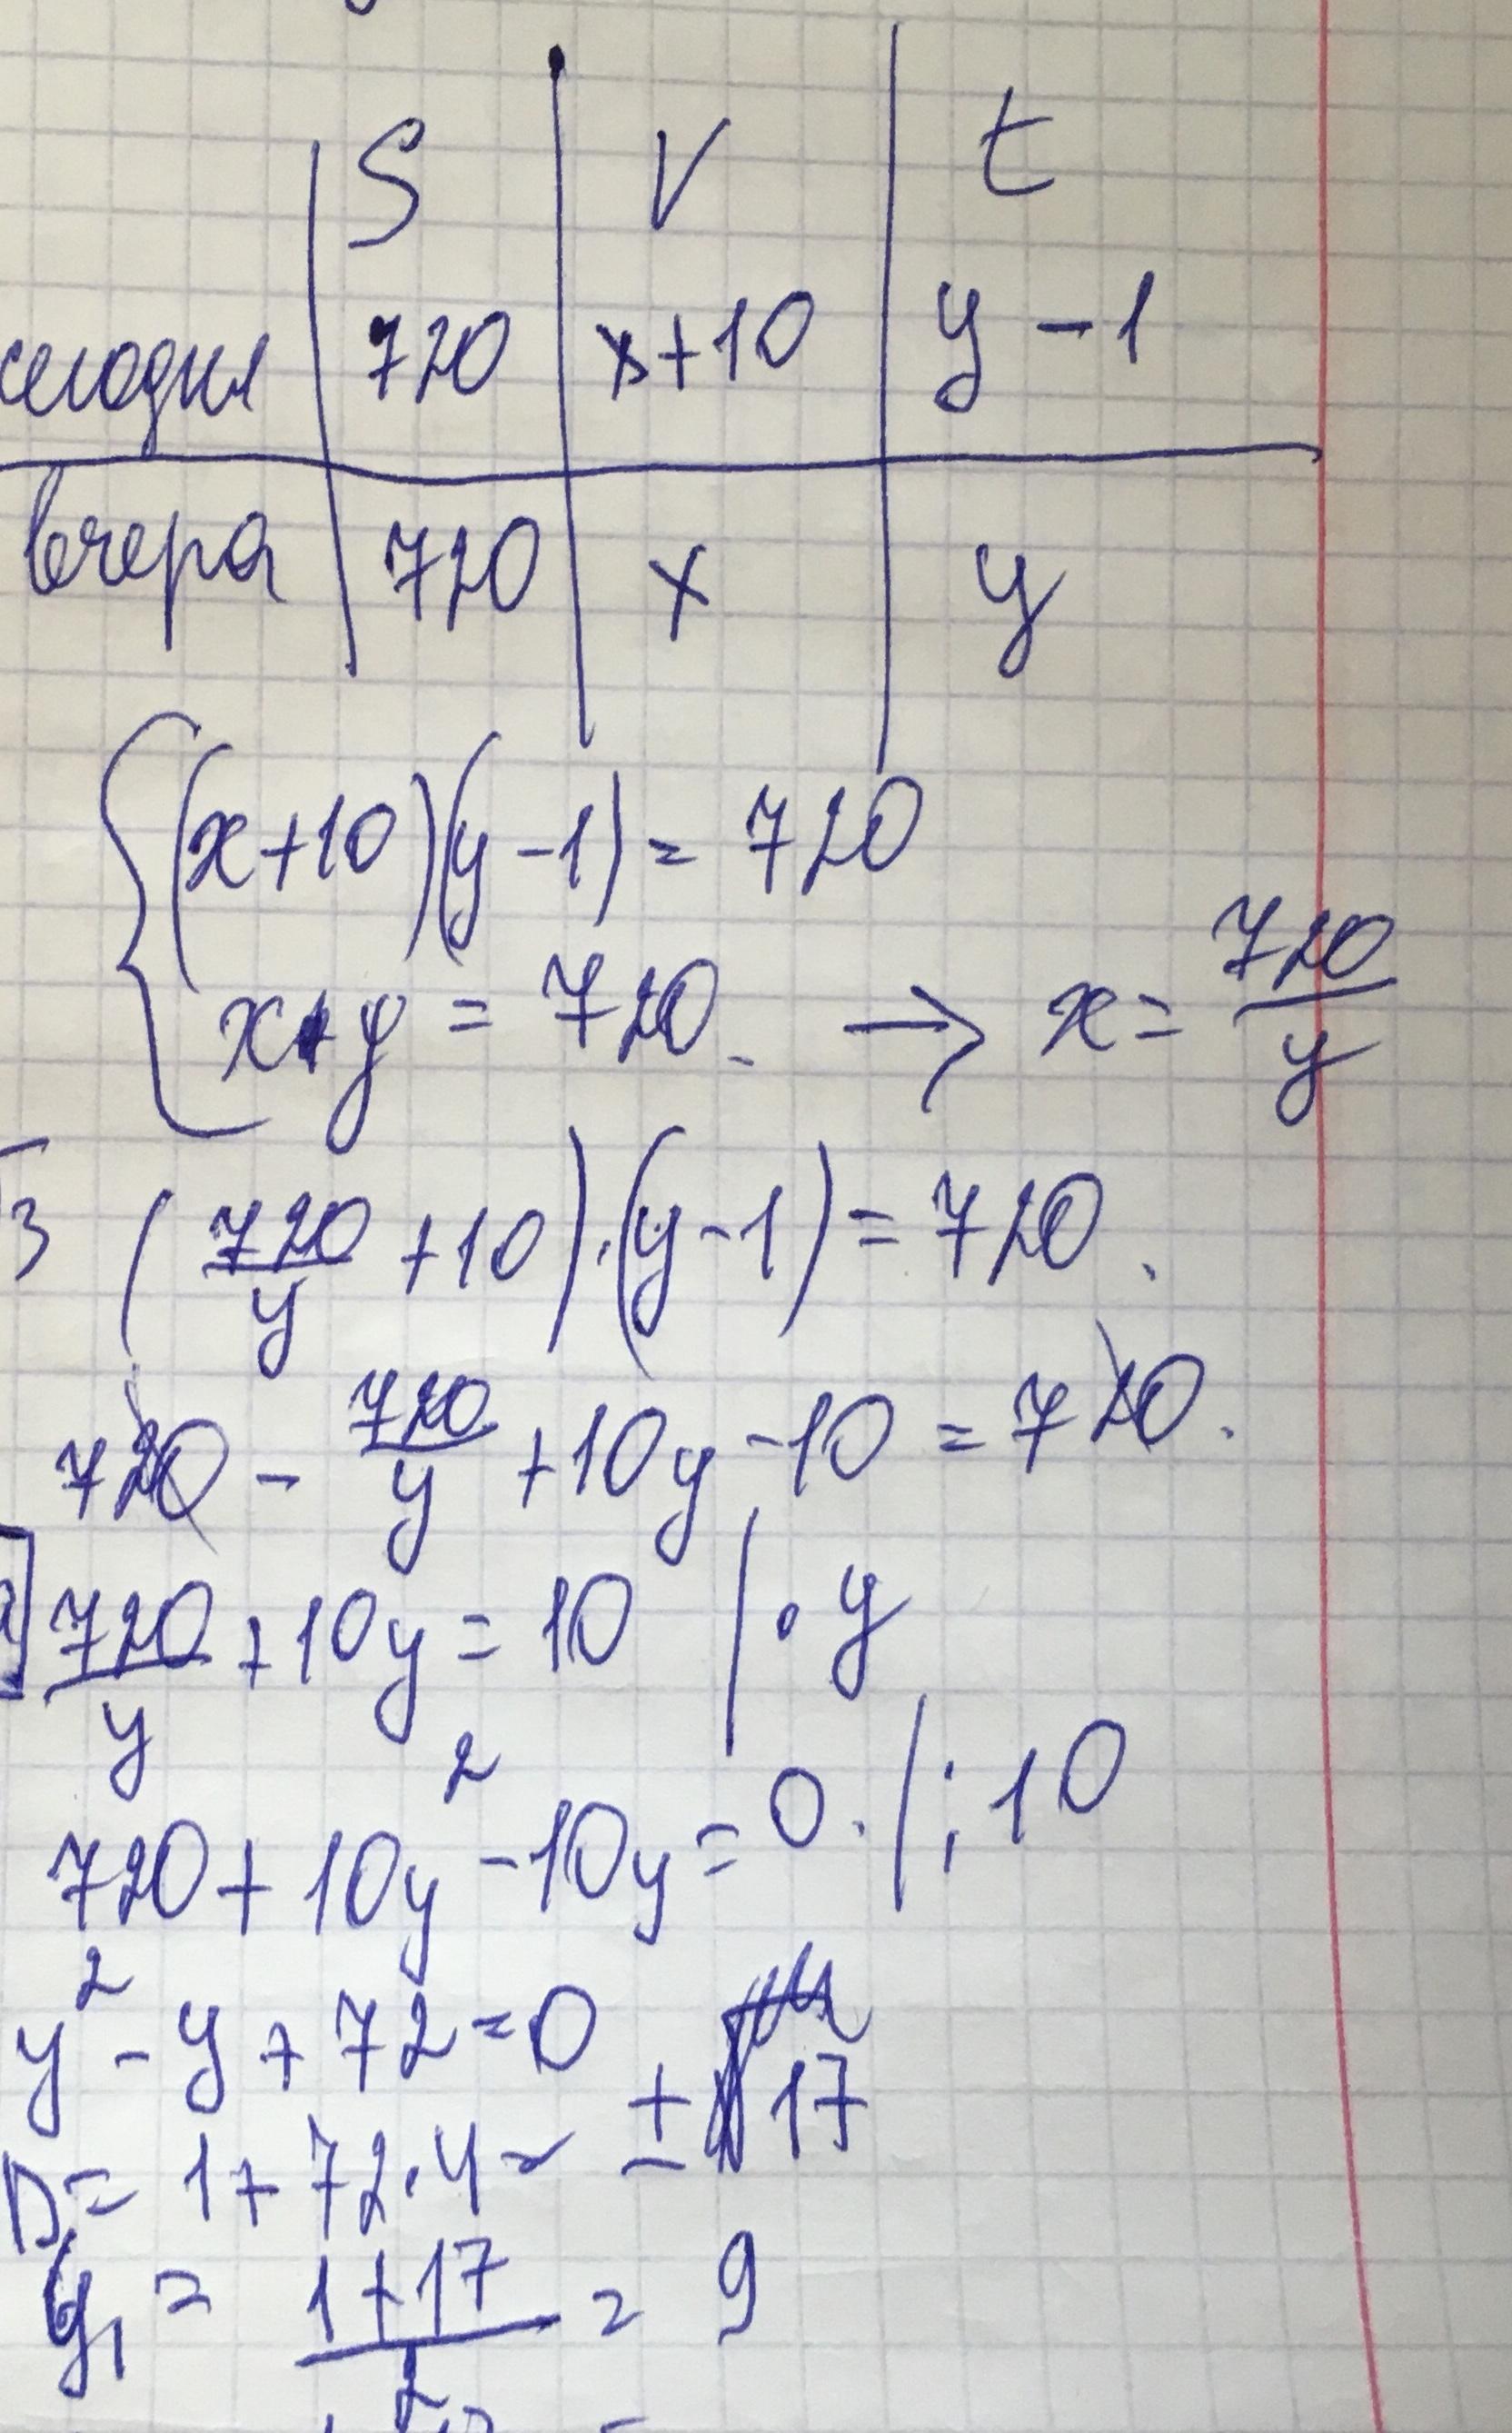 S V t
сегодня 720 x+10 y-1
вчера 720 x y
(x+10)(y-1)=720
x·y=720. → x=720/y
3 (720/y +10)·(y-1)=720.
720 - 720/y +10y-10=720.
720/y +10y=10 | · y
720+10y²-10y=0. | : 10
y²-y+72=0
D=1+72·4= ±17
y₁ = (1+17)/2 = 9